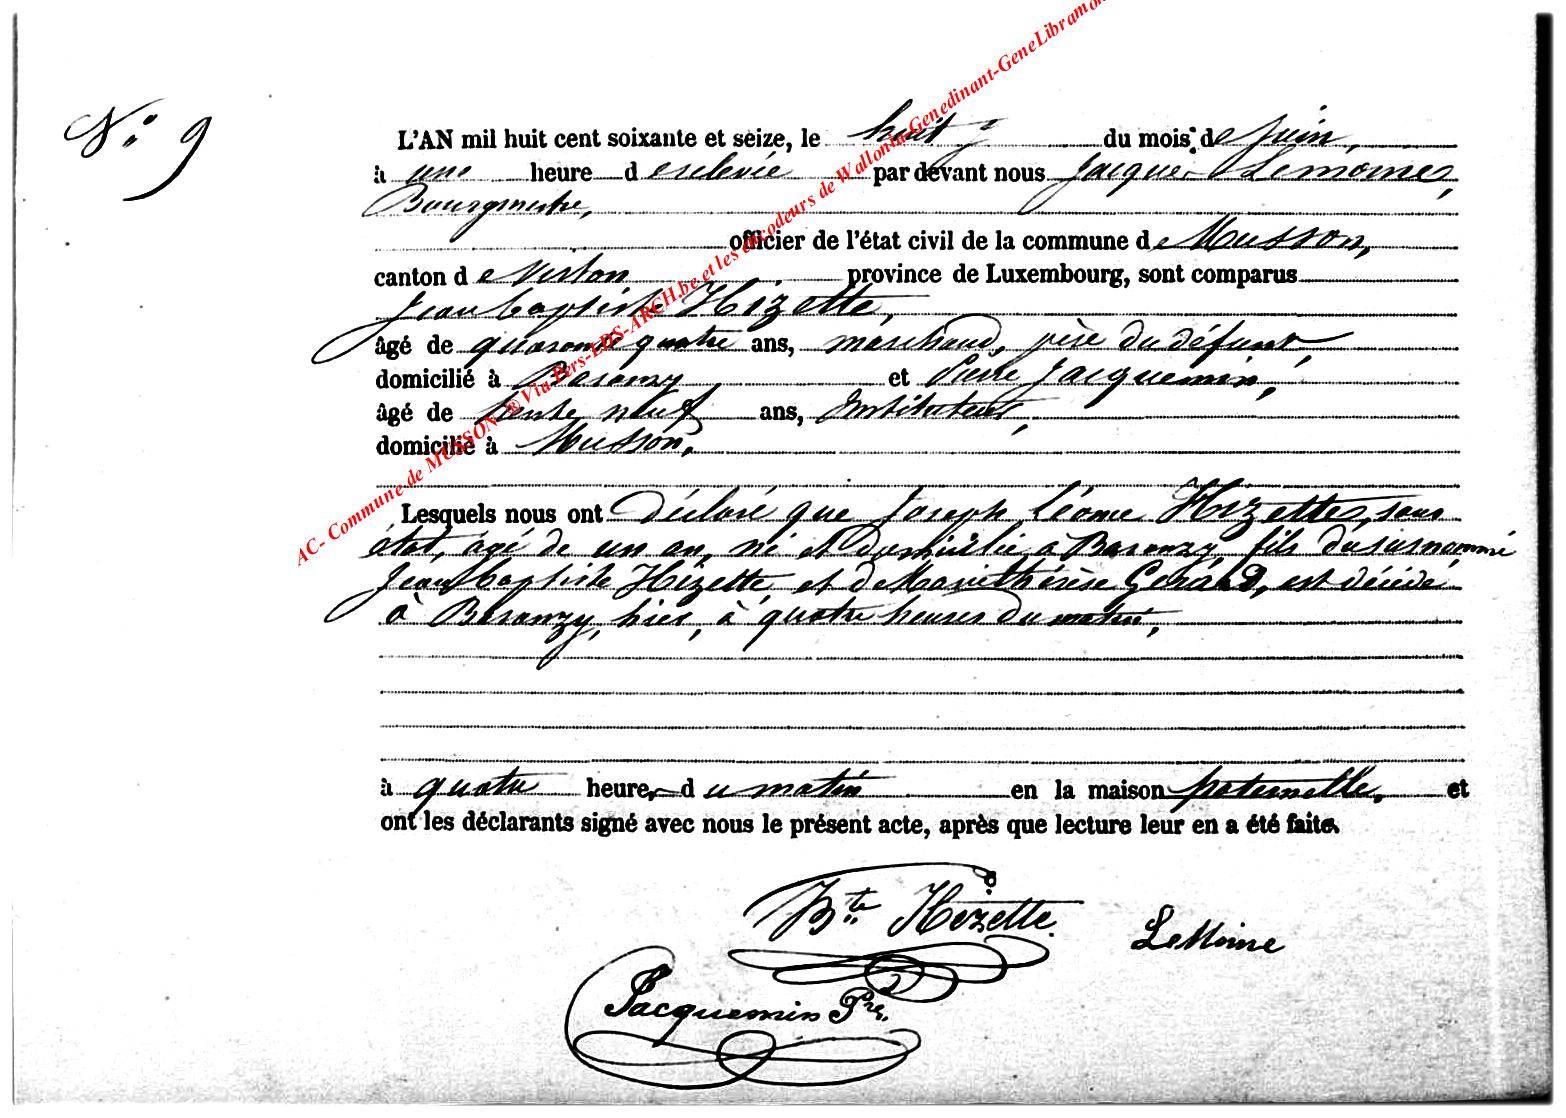 N° 9
L'AN mil huit cent soixante et seize, le huit du mois de Juin,
à une heure de relevée par devant nous Jacques Lemoine,
Bourgmestre,
officier de l'état civil de la commune de Musson,
canton de Virton province de Luxembourg, sont comparus
Jean Baptiste Hizette,
âgé de quarante quatre ans, marchand, père du défunt,
domicilié à Baranzy et Pierre Jacquemin,
âgé de trente neuf ans, Instituteur,
domicilié à Musson,
Lesquels nous ont déclaré que Joseph Léonce Hizette, sans
état, âgé de un an, né et domicilié à Baranzy, fils du susnommé
Jean Baptiste Hizette et de Marie Thérèse Gérard, est décédé
à Baranzy, hier, à quatre heures du matin,
à quatre heures du matin en la maison paternelle, et
ont les déclarants signé avec nous le présent acte, après que lecture leur en a été faite.
Bte Hizette
LeMoine
Jacquemin Pre.
AC- Commune de MUSSON ® Via Pers-LDS-ARCH.be et les encodeurs de Wallonia-Genedinant-GeneLibramon